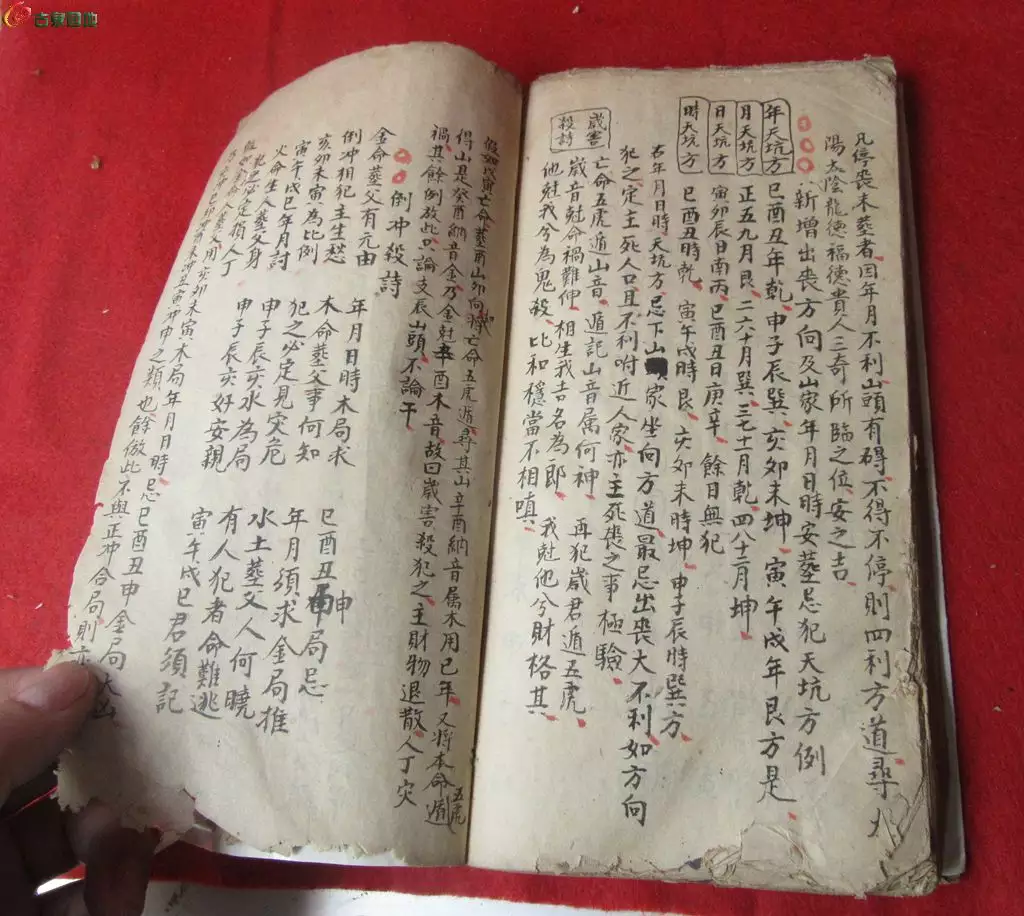 凡停喪未葬者因年月不利山頭有碍不得不停則四利方道尋
陽太陰龍德福德貴人三奇所臨之位安之吉
新增出喪方向及山家年月日時安葬忌犯天坑方例
年天坑方 巳酉丑年乾 申子辰巽 亥卯未坤 寅午戌年艮方是
月天坑方 正五九月艮 二六十月巽 三七十一月乾 四八十二月坤
日天坑方 寅卯辰日南丙 巳酉丑日庚辛 餘日無犯
時天坑方 巳酉丑時乾 寅午戌時艮 亥卯未時坤 申子辰時巽方
右年月日時天坑方忌下山家坐向方道最忌出喪大不利如方向
犯之定主死人口且不利附近人家亦主死喪之事極驗
歲害殺詩
亡命五虎遁山音 遁記山音属何神 再犯歲君遁五虎
歲音尅命禍難伸 相生我吉名為郎 我尅他兮財格其
他尅我兮為鬼殺 比和穩當不相嗔
假如戊寅亡命葬酉山卯向將亡命五虎遁尋其山辛酉納音属木用巳年又將本命遁五虎
得山是癸酉納音金乃金尅辛酉木音故曰歲害殺犯之主財物退散人丁災
禍其餘例放此只論支辰山頭不論干
倒冲殺詩
金命葬父有元由 年月日時木局求 巳酉丑申局忌
倒冲相犯主生愁 木命葬父事何知 年月須求金局推
亥卯未寅為比例 犯之必定見災危 水土葬父人何曉
寅午戌巳年月討 申子辰亥水為局 有人犯者命難逃
火命生人葬父身 申子辰亥好安親 寅午戌巳君須記
犯之必定損人丁
假如金命人葬父用亥卯未寅木局年月日時忌巳酉丑申金局大凶
冲巳卯冲酉未冲丑寅冲申之類也餘倣此不與正冲合局則亦